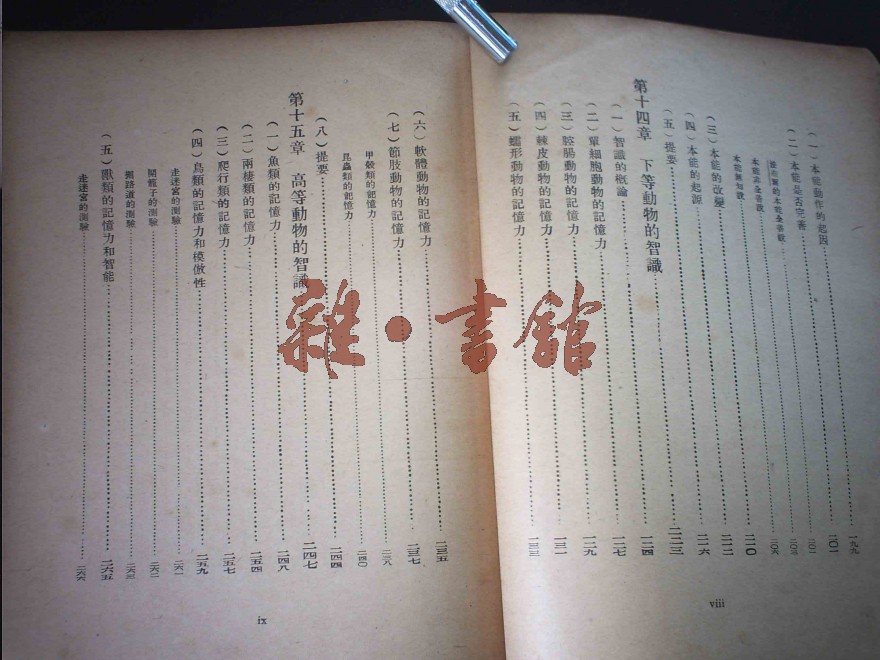 (一)本能動作的起因……一九九
(二)本能是否完善……二〇一
本能完全善說
本能無知說
(三)本能的改變……二一〇
(四)本能的起源……二一六
(五)提要……二二三
第十四章 下等動物的智識……二二四
(一)智識的概論……二二七
(二)單細胞動物的記憶力……二二九
(三)腔腸動物的記憶力……二三一
(四)棘皮動物的記憶力
(五)蠕形動物的記憶力
viii
(六)軟體動物的記憶力……二三五
(七)節肢動物的記憶力……二三七
甲殼類的記憶力……二三八
昆蟲類的記憶力……二四〇
(八)提要……二四四
第十五章 高等動物的智識……二四七
(一)魚類的記憶力……二四八
(二)兩棲類的記憶力……二五四
(三)爬行類的記憶力……二五七
(四)鳥類的記憶力和模倣性……二五九
走迷宮的測驗……二六一
開籠子的測驗……二六二
擇路道的測驗……二六三
(五)獸類的記憶力和智能……二六五
走迷宮的測驗……二六六
ix
雜·書館